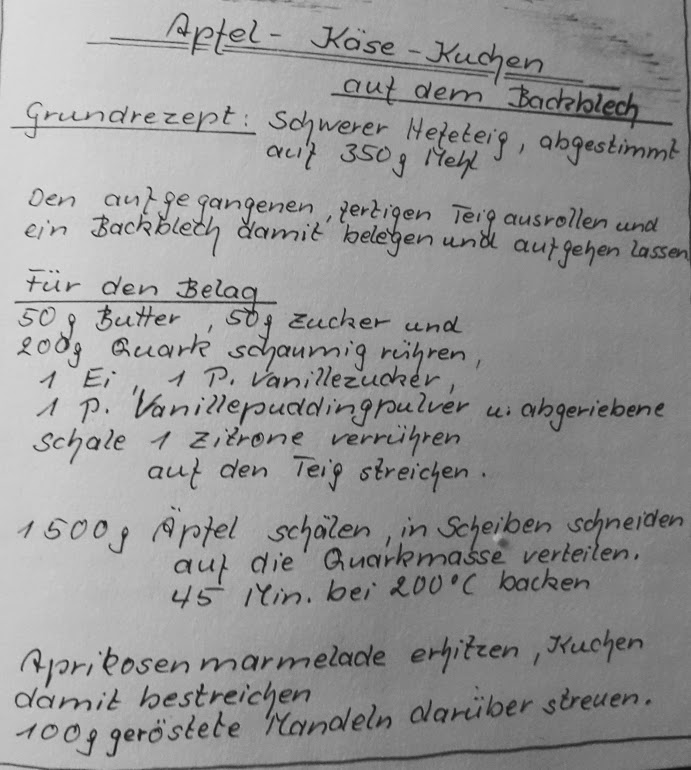 Apfel - Käse - Kuchen
auf dem Backblech
Grundrezept: Schwerer Hefeteig, abgestimmt
auf 350g Mehl
Den aufgegangenen, fertigen Teig ausrollen und
ein Backblech damit belegen und aufgehen lassen
Für den Belag
50g Butter, 50g Zucker und
200g Quark schaumig rühren,
1 Ei, 1 P. Vanillezucker,
1 P. Vanillepuddingpulver u. abgeriebene
Schale 1 Zitrone verrühren
auf den Teig streichen.
1500g Äpfel schälen, in Scheiben schneiden
auf die Quarkmasse verteilen.
45 Min. bei 200°C backen
Aprikosenmarmelade erhitzen, Kuchen
damit bestreichen
100g geröstete Mandeln darüber streuen.